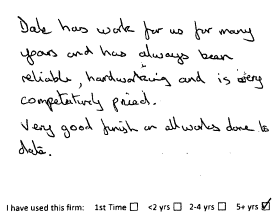 Dale has work for us for many
years and has always been
reliable, hardworking and is very
competatively priced.
Very good finish on all works done to
date.
I have used this firm: 1st Time ☐ <2 yrs ☐ 2-4 yrs ☐ 5+ yrs ☑